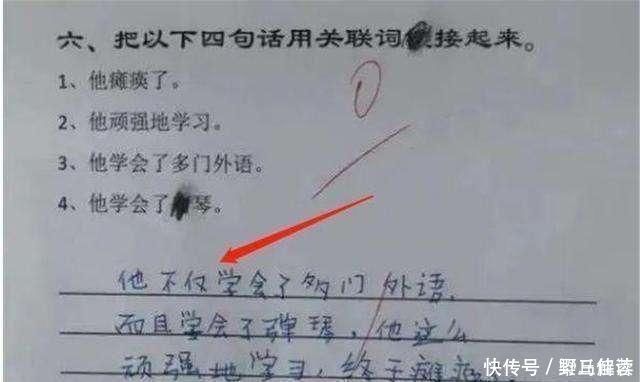 六、把以下四句话用关联词接起来。
1、他瘫痪了。
2、他顽强地学习。
3、他学会了多门外语。
4、他学会了琴。
他不仅学会了多门外语,
而且学会了弹琴,他这么
顽强地学习,终于瘫痪
快传号/野马解荟